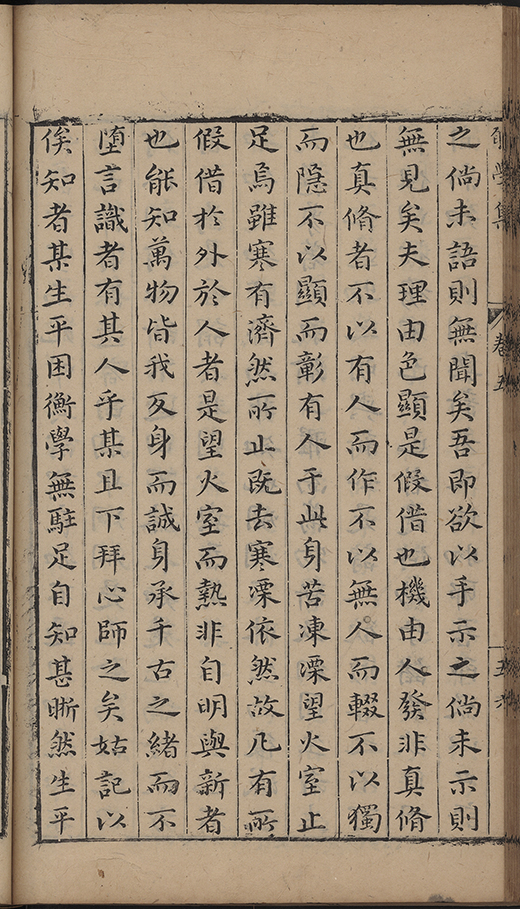 學集 卷五 五六
之倘未語則無聞矣吾即欲以手示之倘未示則
無見矣夫理由色顯是假借也機由人發非真脩
也真脩者不以有人而作不以無人而輟不以獨
而隱不以顯而彰有人于此身苦凍凓望火室止
足焉雖寒有濟然所止既去寒凓依然故凡有所
假借於外於人者是望火室而熱非自明與新者
也能知萬物皆我反身而誠身承千古之緒而不
墮言識者有其人乎某且下拜心師之矣姑記以
俟知者某生平困衡學無駐足自知甚晣然生平